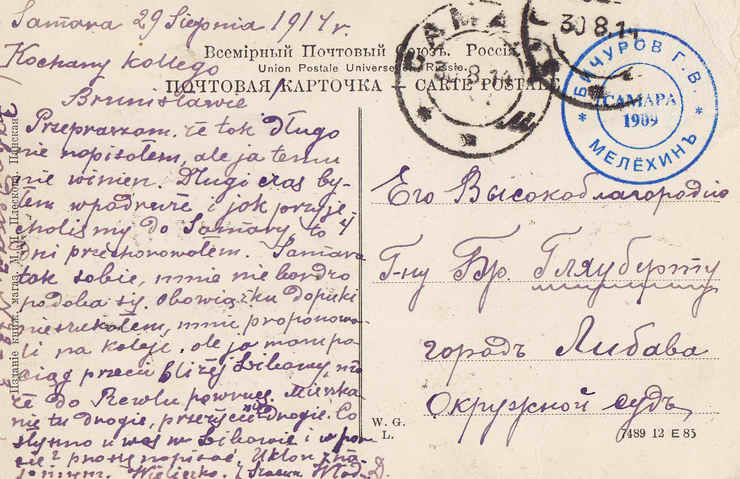 Samara 29 Sierpnia 1914 r.
Kochany kollego
Bronisławie
Всемірный Почтовый Союзъ. Россія
Union Postale Universelle. Russie.
ПОЧТОВАЯ КАРТОЧКА — CARTE POSTALE
САМАРА
30 8 14
30 8 14
БИЧУРОВ Г. В.
САМАРА
1909
МЕЛЁХИНЪ
Przepraszam, że tak długo
nie napisałem, ale ja temu
nie winien. Długi czas by-
łem w podróży i jak przyje-
chaliśmy do Samary to 4
dni przechorowałem. Samara
tak sobie, mnie nie bardzo
podoba się. Obowiązku dopóki
nie szukałem, mnie proponowa-
li na koleje, ale ja mam
bliżej Libawy,
że do Rewlu powrócę. Mieszka-
nie tu drogie, drogie. Co
słychać u was w Libawie i
proszę napisać. Ukłon zna-
jomym.
Его Высокоблагородію
Г-ну Бр. Гляуберту
городъ Либава
Окружной судъ
W. G.
L.
7489 12 E 85
Изданіе книж. магаз. М.